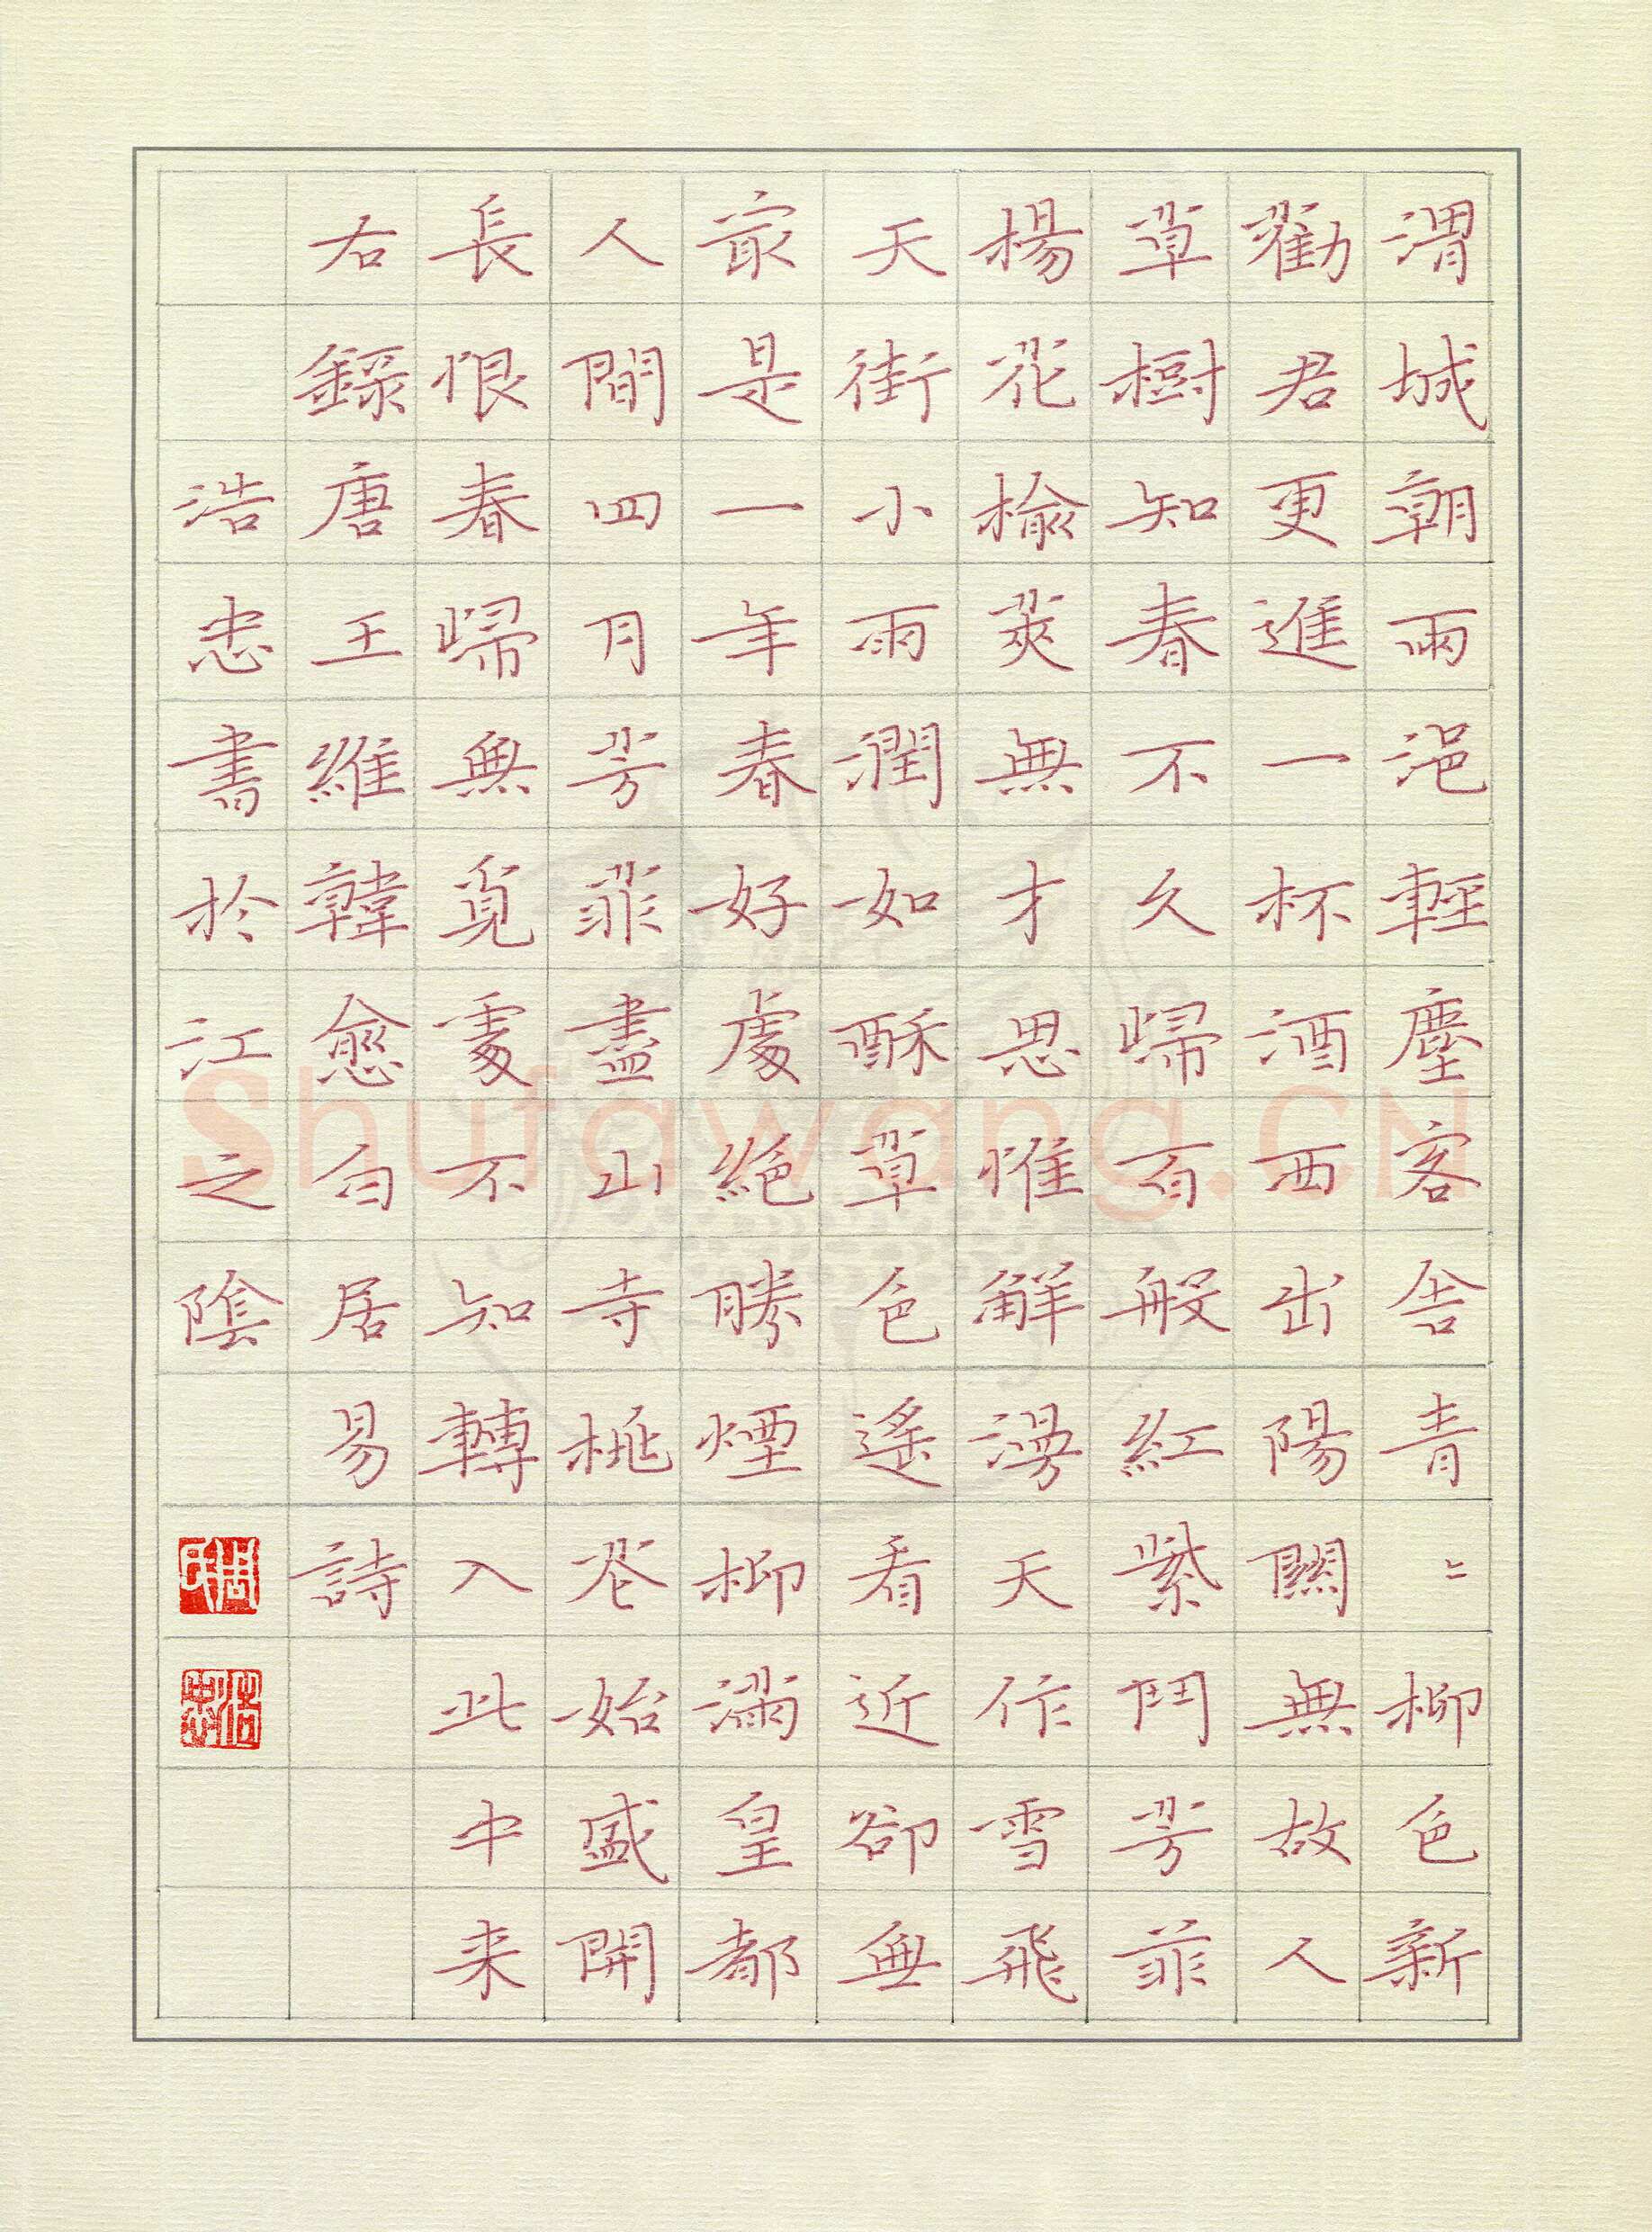 渭城朝雨浥輕塵客舍青〻柳色新
勸君更進一杯酒西出陽關無故人
草樹知春不久歸百般紅紫鬥芳菲
楊花榆莢無才思惟解漫天作雪飛
天街小雨潤如酥草色遙看近卻無
最是一年春好處絕勝煙柳滿皇都
人間四月芳菲盡山寺桃花始盛開
長恨春歸無覓處不知轉入此中来
右錄唐王維韓愈白居易詩
浩忠書於江之陰
周氏
浩忠
Shufawang.CN